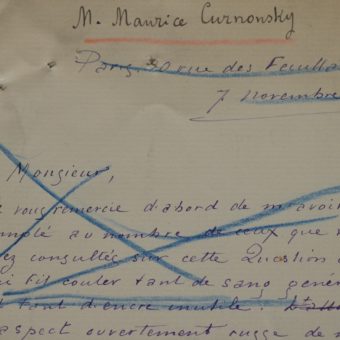 M. Maurice Curnonsky
Paris, 30 rue des Feuilla
7 novembre
Monsieur,
vous remercie d'abord de m'avoir
mplé au nombre de ceux que v
ez consultés sur cette Question d
i fit couler tant de sang génér
t tant d'encre inutile.
aspect ouvertement russe de m